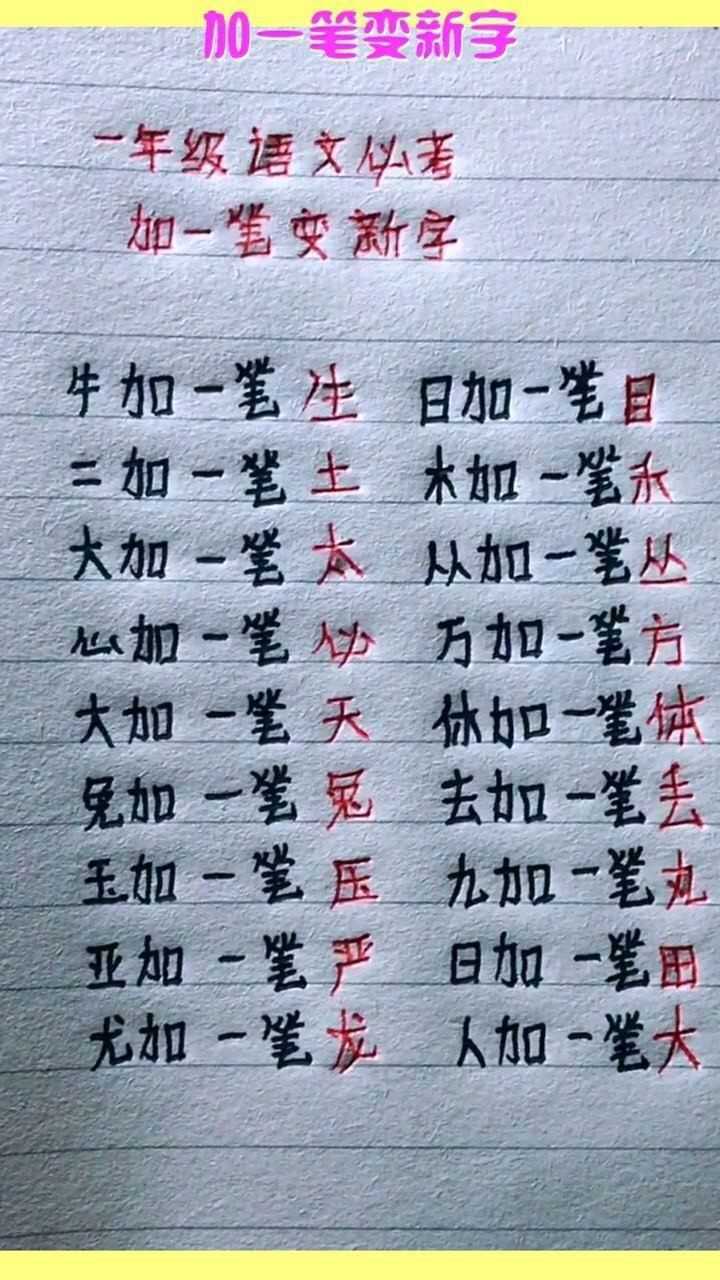 加一笔变新字
一年级语文必考
加一笔变新字
牛加一笔生 日加一笔目
二加一笔土 木加一笔禾
大加一笔太 从加一笔丛
心加一笔必 万加一笔方
大加一笔天 休加一笔体
免加一笔兔 去加一笔丢
玉加一笔压 九加一笔丸
亚加一笔严 日加一笔田
尤加一笔龙 人加一笔大